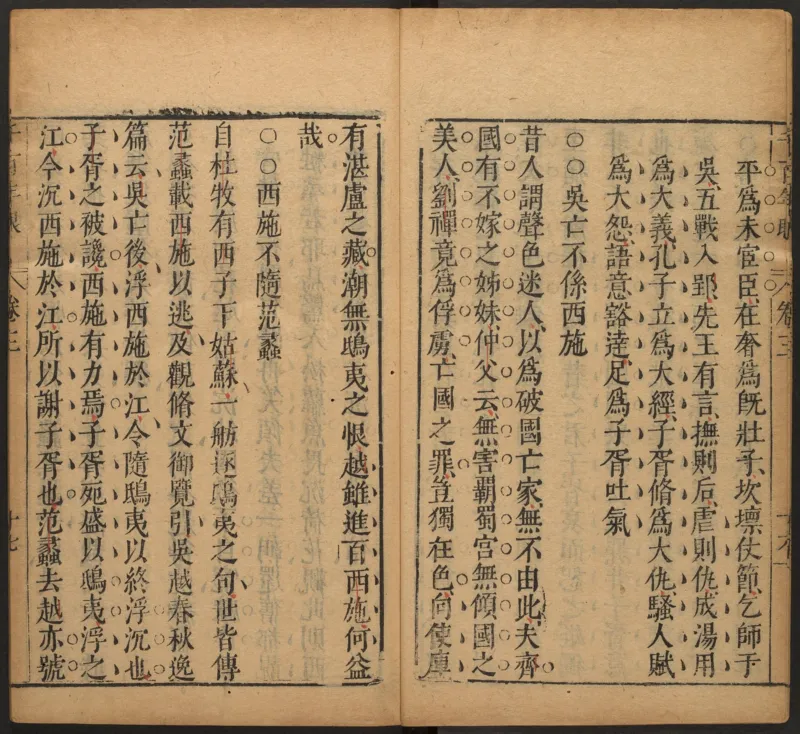 平爲未宦臣在奢爲旣壯子坎壈仗節乞師于
吳五戰入郢先王有言撫則后虐則仇成湯用
爲大義孔子立爲大經子胥脩爲大仇騷人賦
爲大怨語意豁達足爲子胥吐氣
○○吳亡不係西施
昔人謂聲色迷人以爲破國亡家無不由此夫齊
國有不嫁之姊妹仲父云無害霸蜀宮無傾國之
美人劉禪竟爲俘虜亡國之罪豈獨在色向使庫
有湛盧之藏潮無鴟夷之恨越雖進百西施何益
哉
○○西施不隨范蠡
自杜牧有西子下姑蘇一舸逐鴟夷之句世皆傳
范蠡載西施以逃及觀脩文御覽引吳越春秋逸
篇云吳亡後浮西施於江令隨鴟夷以終浮沉也
子胥之被讒西施有力焉子胥死盛以鴟夷浮之
江今沉西施於江所以謝子胥也范蠡去越亦號
千百年眼
卷三
十七